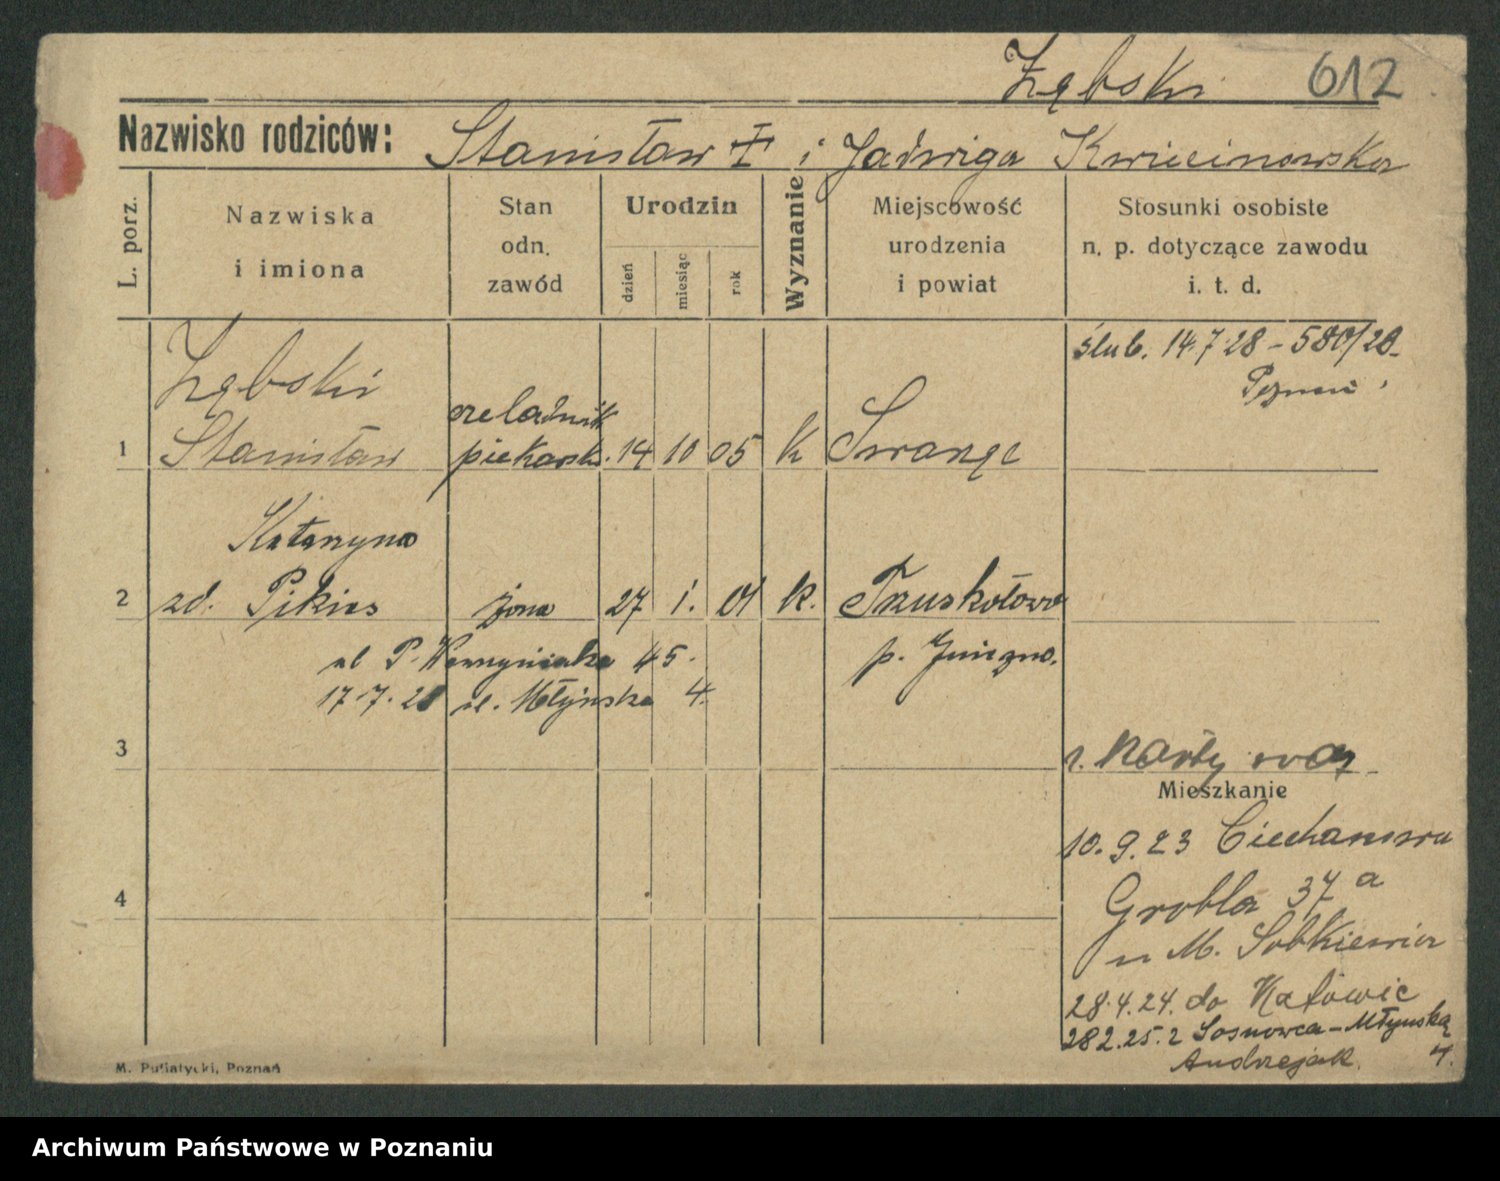 Ząbski 612
Nazwisko rodziców: Stanisław † i Jadwiga Kwiecinowska
L. porz.
Nazwiska
i imiona
Stan
odn.
zawód
Urodzin
dzień
miesiąc
rok
Wyznanie
Miejscowość
urodzenia
i powiat
Stosunki osobiste
n. p. dotyczące zawodu
i. t. d.
ślub. 14.7.28 - 580/28.
Poznań
Ząbski
czeladnik
1 Stanisław piekarsk. 14 10 05 k
Katarzyna
2 zd. Pikies żona 27 1. 01 k. Truskołowo
ul P. Wawrzyniaka 45.
p. Gniezno.
17.7.28 ul. Młyńska 4.
3
Mieszkanie
10.9.23
4
Grobla 37 a
u M. Sobkiewicz
28.4.24. do Katowic
28 2.25. z Sosnowca - Młyńska
Andrzejak. 4.
M. Putiatycki, Poznań
Archiwum Państwowe w Poznaniu